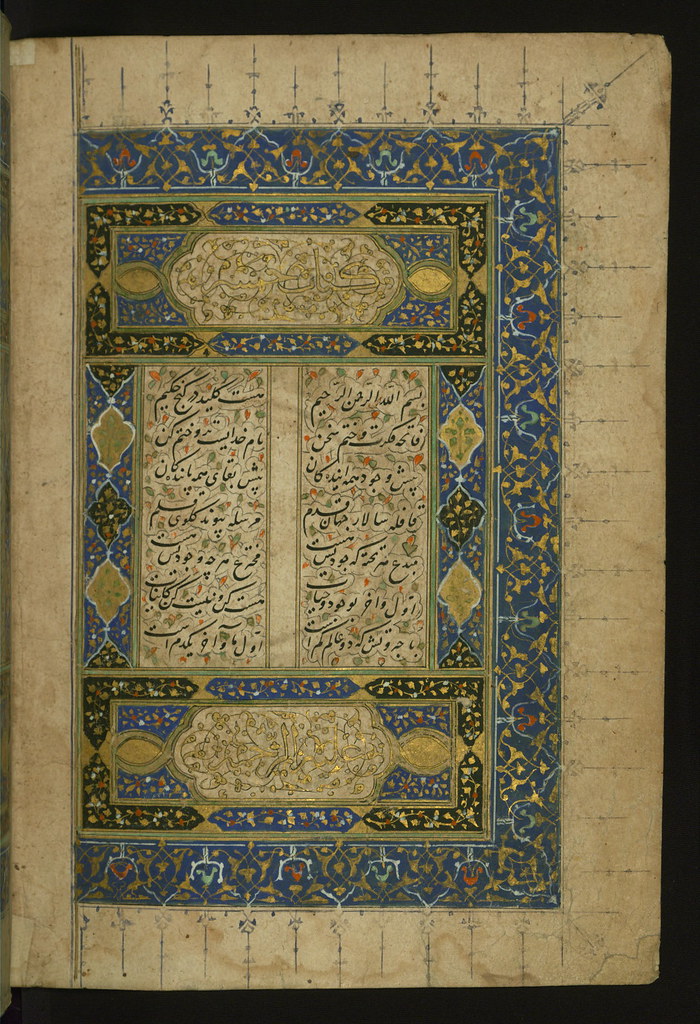 کتاب خمسه
بسم الله الرحمن الرحیم هست کلید در گنج حکیم
فاتحه فکرت و ختم سخن نام خدایست برو ختم کن
پیش وجود همه آیندگان بیش بقای همه پایندگان
قافله سالار جهان قدم مرسله پیوند گلوی قلم
مبدع هر چشمه که جودیش هست مخترع هر چه وجودیش هست
اول و آخر بوجود و حیات هست کن و نیست کن کاینات
با جبروتش که دو عالم کم است اول ما و آخر یکدم است